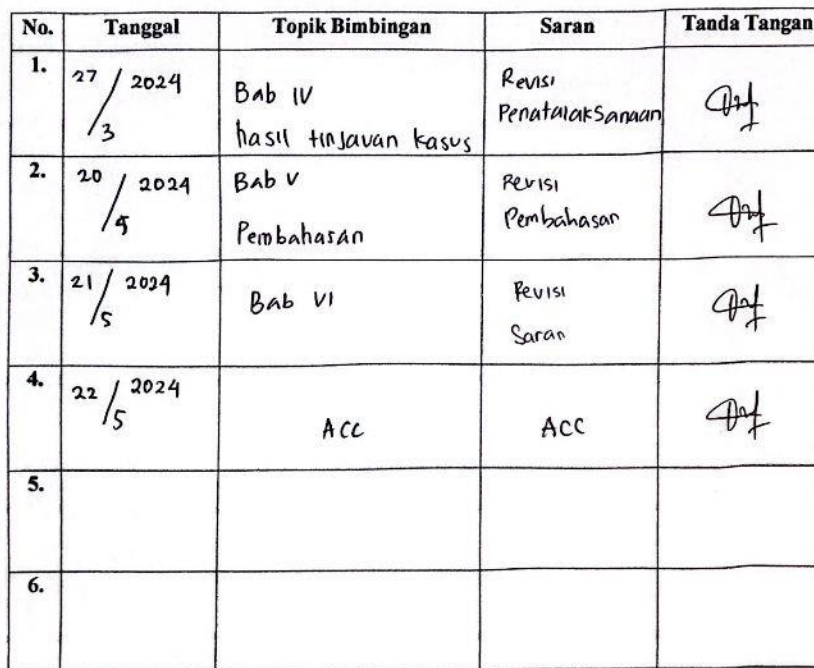 No. Tanggal Topik Bimbingan Saran Tanda Tangan
1. 27/3 2024 Bab IV Revisi
hasil tinjauan kasus Penatalaksanaan
2. 20/5 2024 Bab V Revisi
Pembahasan Pembahasan
3. 21/5 2024 Bab VI Revisi
Saran
4. 22/5 2024 ACC ACC
5.
6.